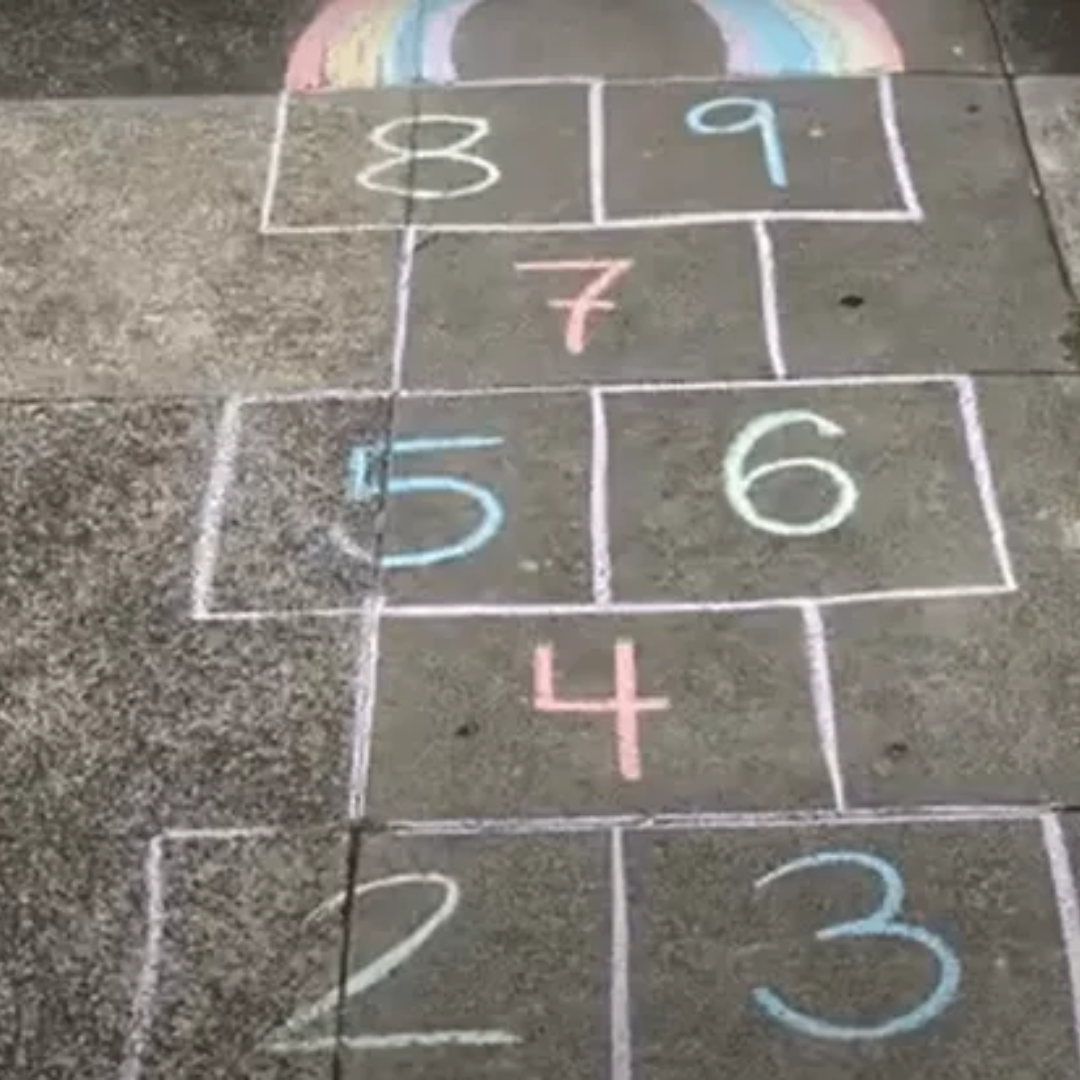 8 9
7
5 6
4
2 3